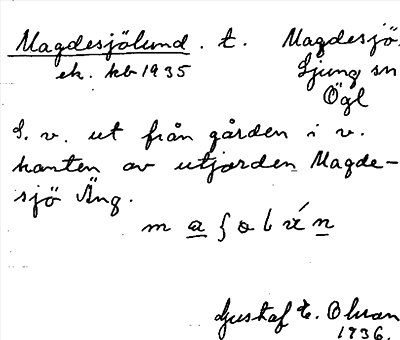 Magdesjölund. t. Magdesjö.
ek. kb 1935 Ljung sn
Ögl
S. v. ut från gården i v.
kanten av utjorden Magde-
sjö Äng.
Gustaf E.
1936.